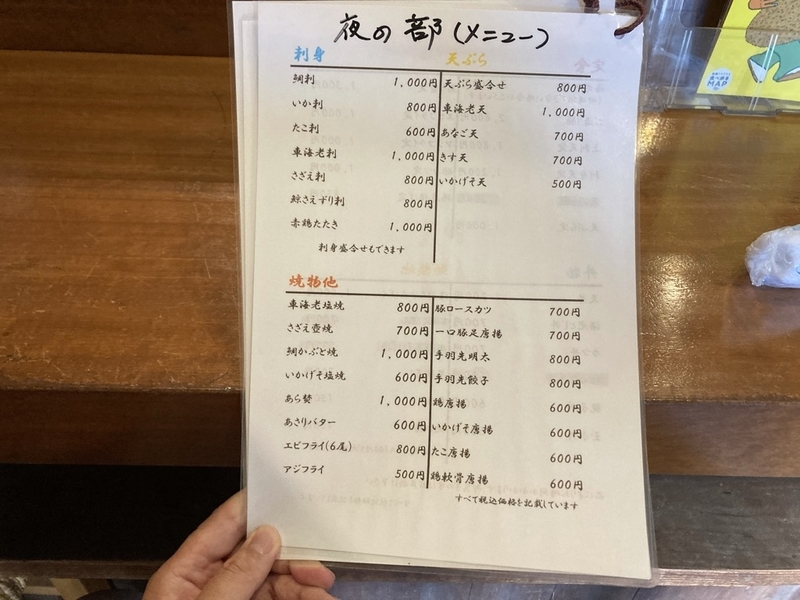 夜の部(メニュー)
刺身
鯛刺 1,000円
いか刺 800円
たこ刺 600円
車海老刺 1,000円
さざえ刺 800円
鯨さえずり刺 800円
赤鶏たたき 1,000円
刺身盛合せもできます
天ぷら
天ぷら盛合せ 800円
車海老天 1,000円
あなご天 700円
きす天 700円
いかげそ天 500円
焼物他
車海老塩焼 800円
さざえ壺焼 700円
鯛かぶと焼 1,000円
いかげそ塩焼 600円
あら煮 1,000円
あさりバター 600円
エビフライ(6尾) 800円
アジフライ 500円
豚ロースカツ 700円
一口豚足唐揚 700円
手羽先明太 800円
手羽先餃子 800円
鶏唐揚 600円
いかげそ唐揚 600円
たこ唐揚 600円
鶏軟骨唐揚 600円
すべて税込価格を記載しています
MAP